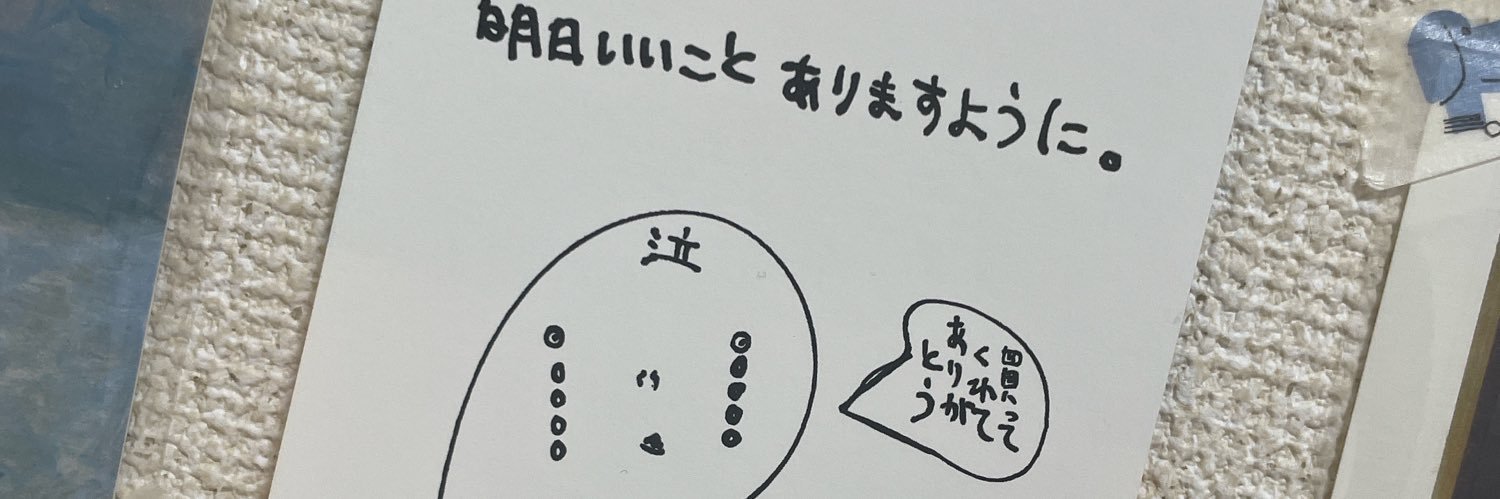 明日いいこと ありますように。
泣
買って
くれて
ありが
とう